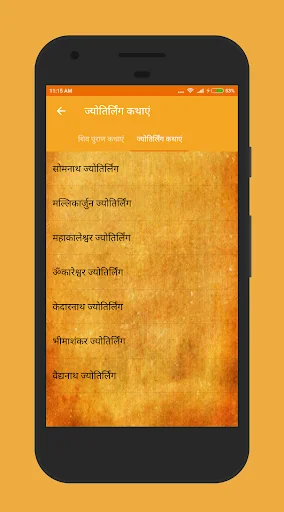 11:15 AM
... 83%
ज्योतिर्लिंग कथाएं
शिव पुराण कथाएं ज्योतिर्लिंग कथाएं
सोमनाथ ज्योतिर्लिंग
मल्लिकार्जुन ज्योतिर्लिंग
महाकालेश्वर ज्योतिर्लिंग
ॐकारेश्वर ज्योतिर्लिंग
केदारनाथ ज्योतिर्लिंग
भीमाशंकर ज्योतिर्लिंग
वैद्यनाथ ज्योतिर्लिंग